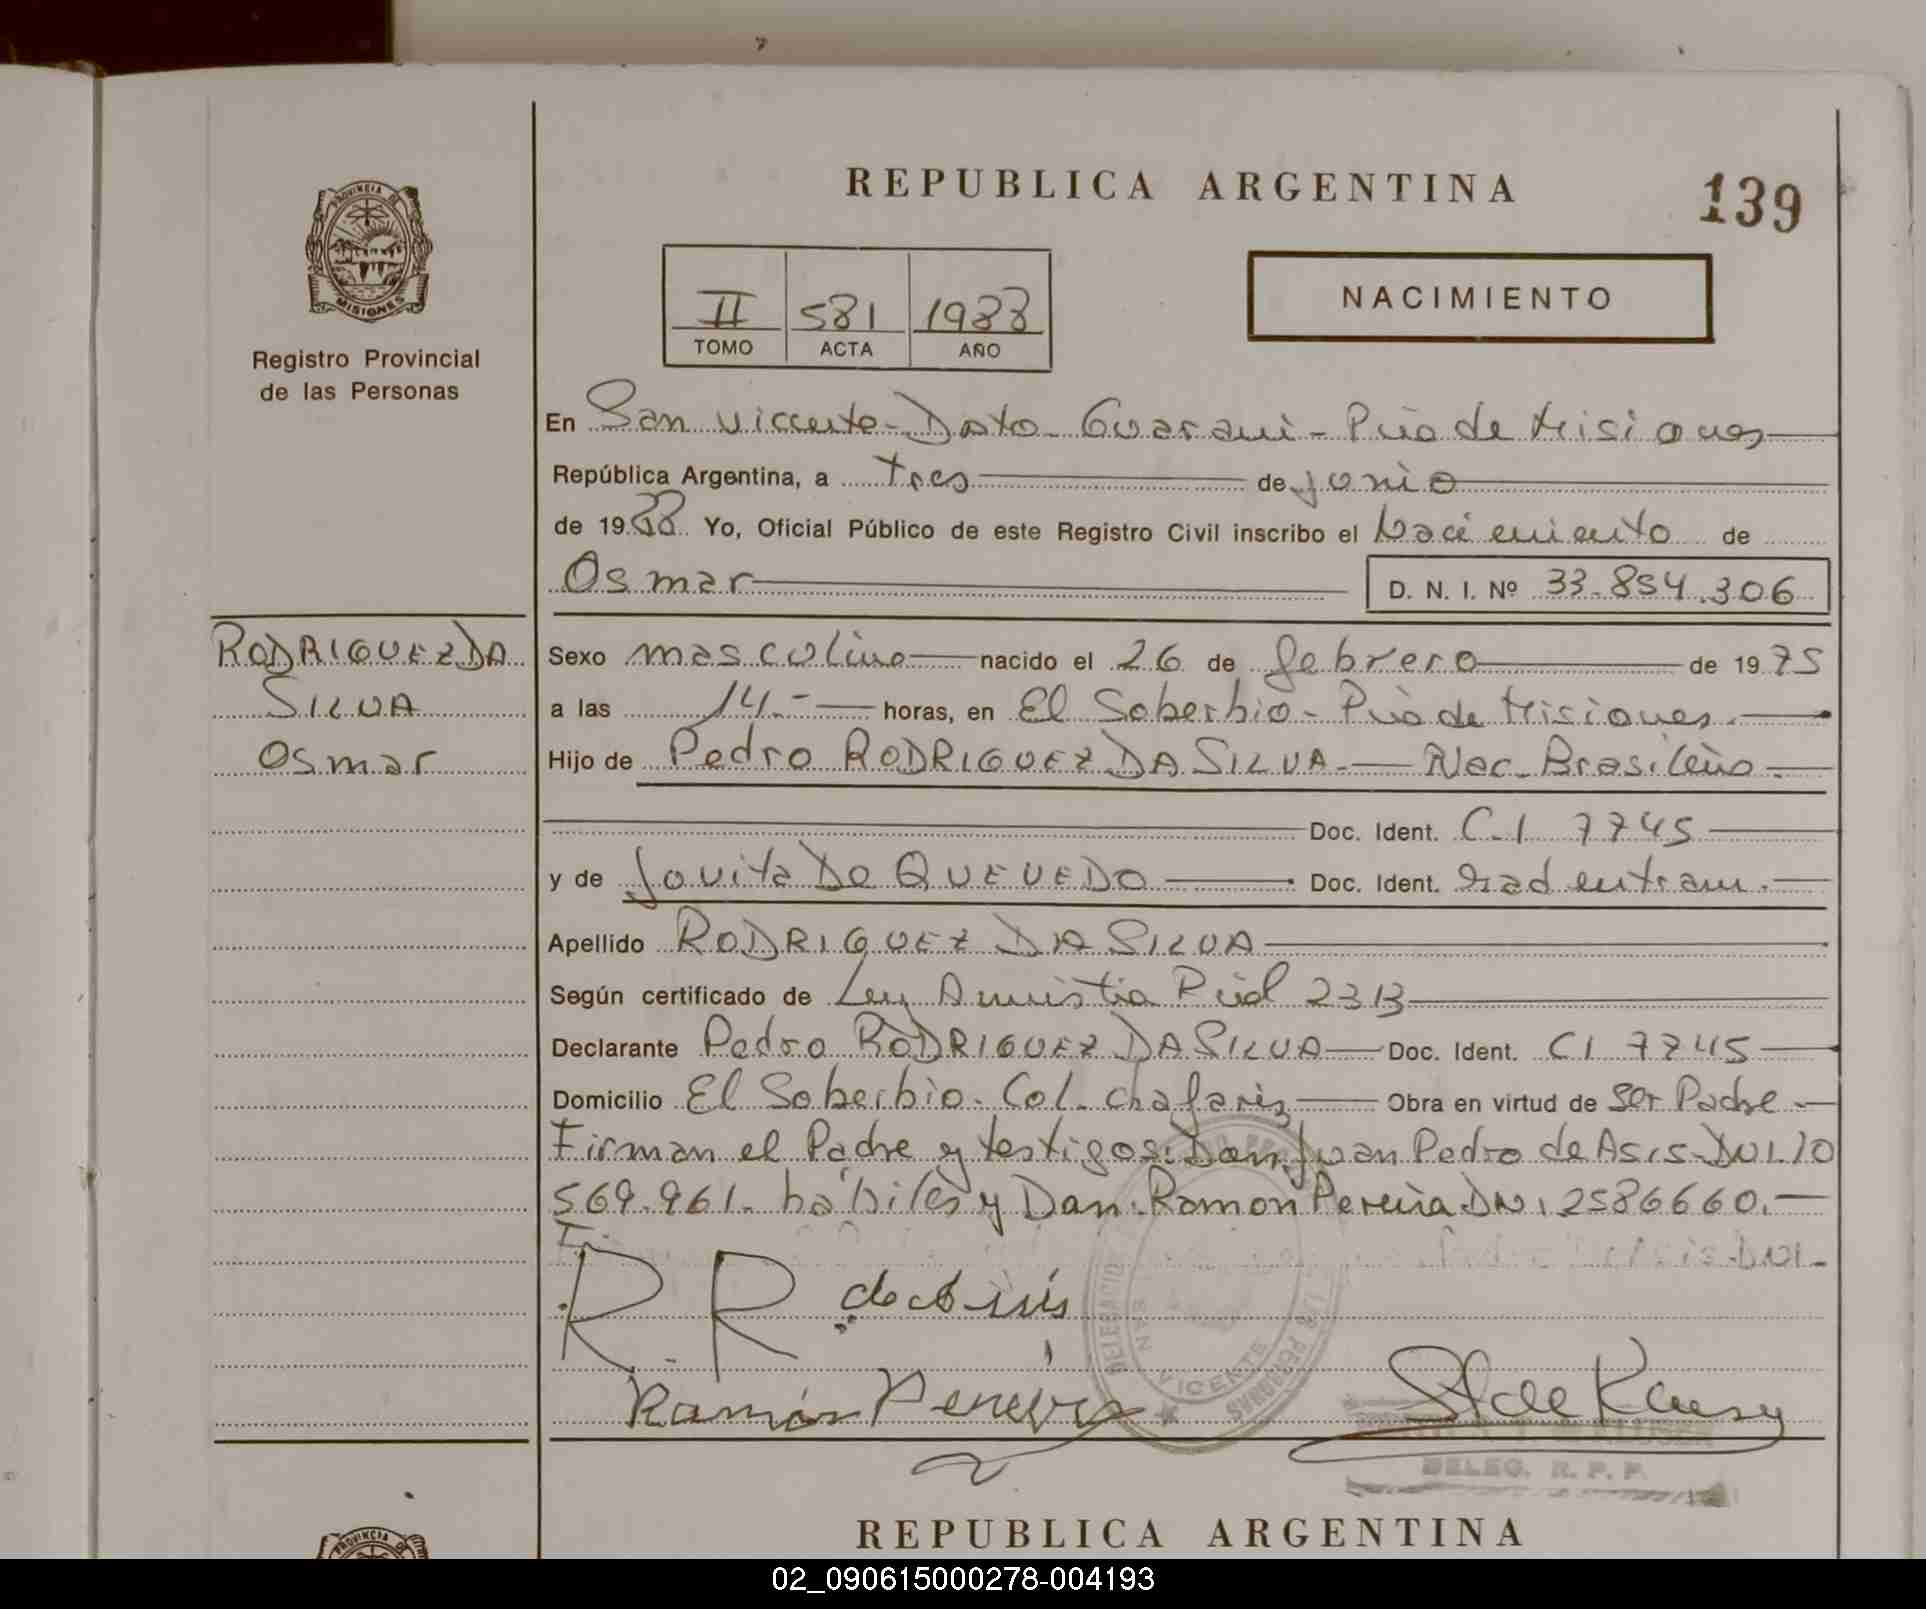 REPUBLICA ARGENTINA
139
PROVINCIA DE
MISIONES
Registro Provincial
de las Personas
II 581 1988
TOMO ACTA AÑO
NACIMIENTO
En San Vicente - Dpto. Guarani - Pcia de Misiones
República Argentina, a tres de junio
de 1988 Yo, Oficial Público de este Registro Civil inscribo el Nacimiento de
Osmar D. N. I. Nº 33.854.306
RODRIGUEZ DA
SILVA
Osmar
Sexo masculino nacido el 26 de febrero de 1975
a las 14.- horas, en El Soberbio - Pcia de Misiones.
Hijo de Pedro RODRIGUEZ DA SILVA.- Nac. Brasileño.
Doc. Ident. C.I 7745
y de Jovita De QUEVEDO Doc. Ident. rad en tram.
Apellido RODRIGUEZ DA SILVA
Según certificado de Ley Amnistia Pcial 2313
Declarante Pedro RODRIGUEZ DA SILVA Doc. Ident. CI 7745
Domicilio El Soberbio. Col. chafariz Obra en virtud de ser Padre.
Firman el Padre y testigos: Don Juan Pedro de Asis-DNI.10
569.961. hábiles y Don: Ramon Pereira DNI 2586660.-
DNI.-
R. R. de asis
Ramón Pereira
SAN VICENTE
DELEG. R. P. P.
REPUBLICA ARGENTINA
PROVINCIA DE
02_090615000278-004193